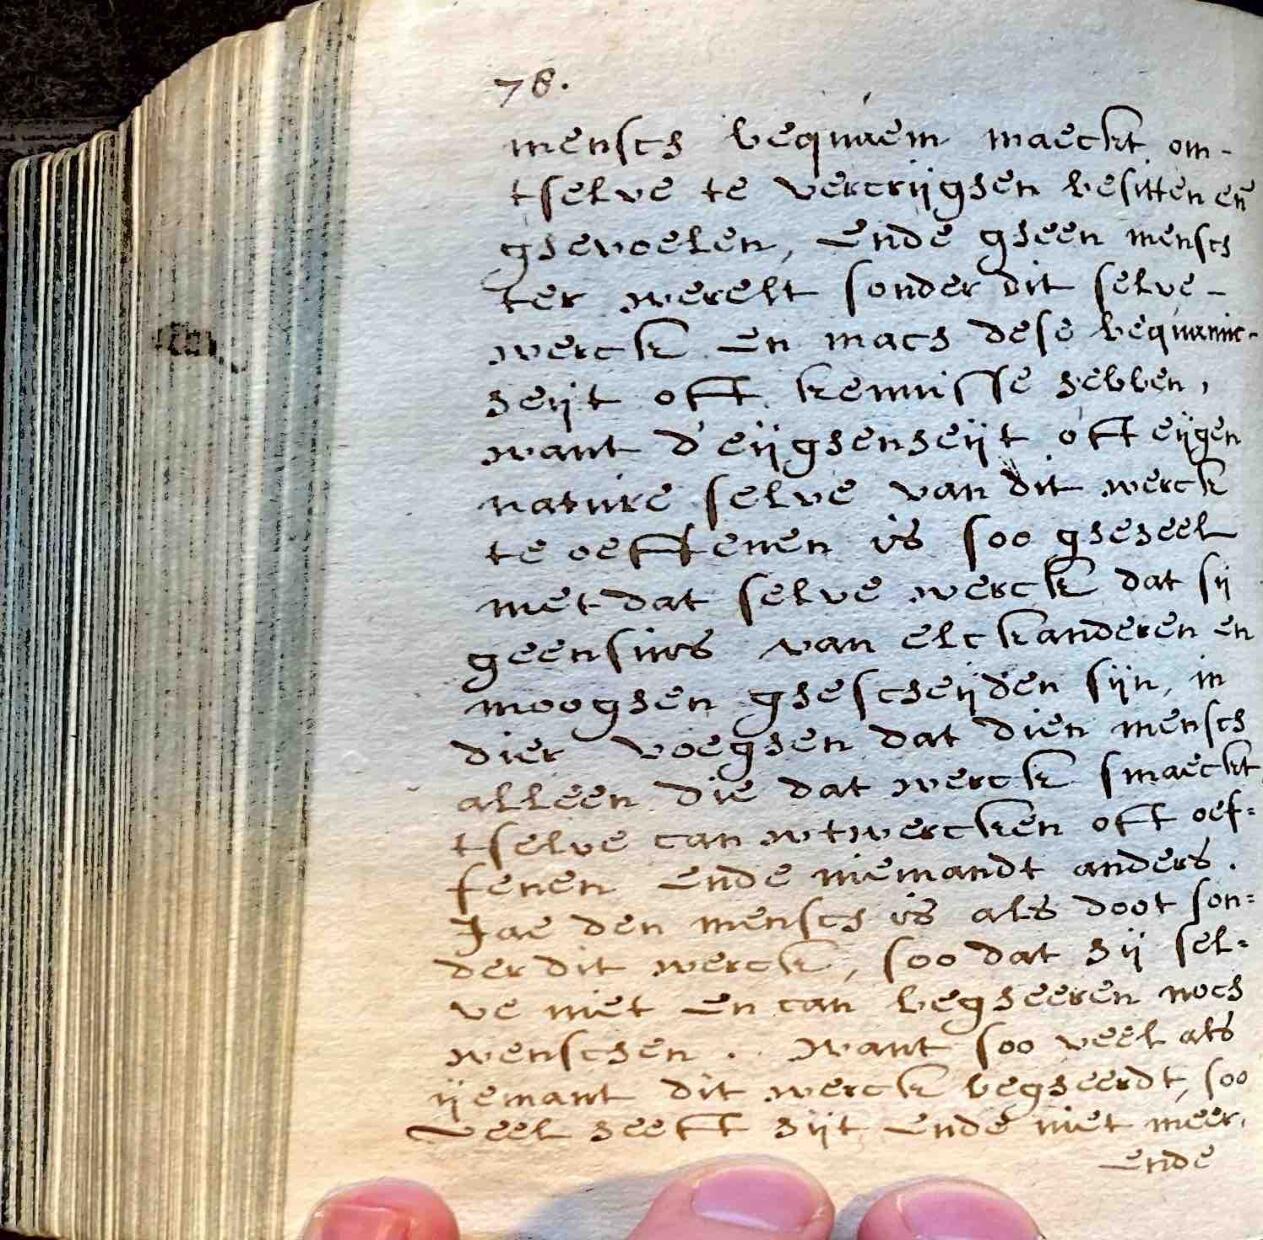 78.
mensch bequaem maeckt om-
tselve te vercrijghen besitten en
ghevoelen, ende gheen mensch
ter werelt sonder dit selve-
werck en mach dese bequamic-
heijt oft kennisse hebben,
want d'eijghenheijt oft eijgen
nature selve van dit werck
te oeffenen is soo gheheel
met dat selve werck dat sij
geensins van elckanderen en
mooghen ghescheijden sijn, in
dier voeghen dat dien mensch
alleen die dat werck smaeckt
tselve can wtwercken oft oef=
fenen ende niemandt anders.
Jae den mensch is als doot son=
der dit werck, soo dat hij sel=
ve niet en can begheeren noch
wenschen. want soo veel als
ijemant dit werck begheerdt, soo
veel heeft hijt ende niet meer,
ende